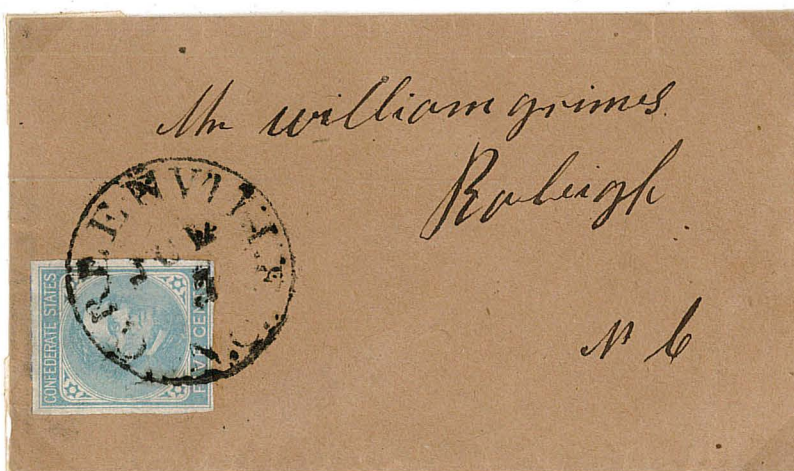 Mr william grimes
Raleigh
N C
GREENVILLE
CONFEDERATE STATES
FIVE CENTS